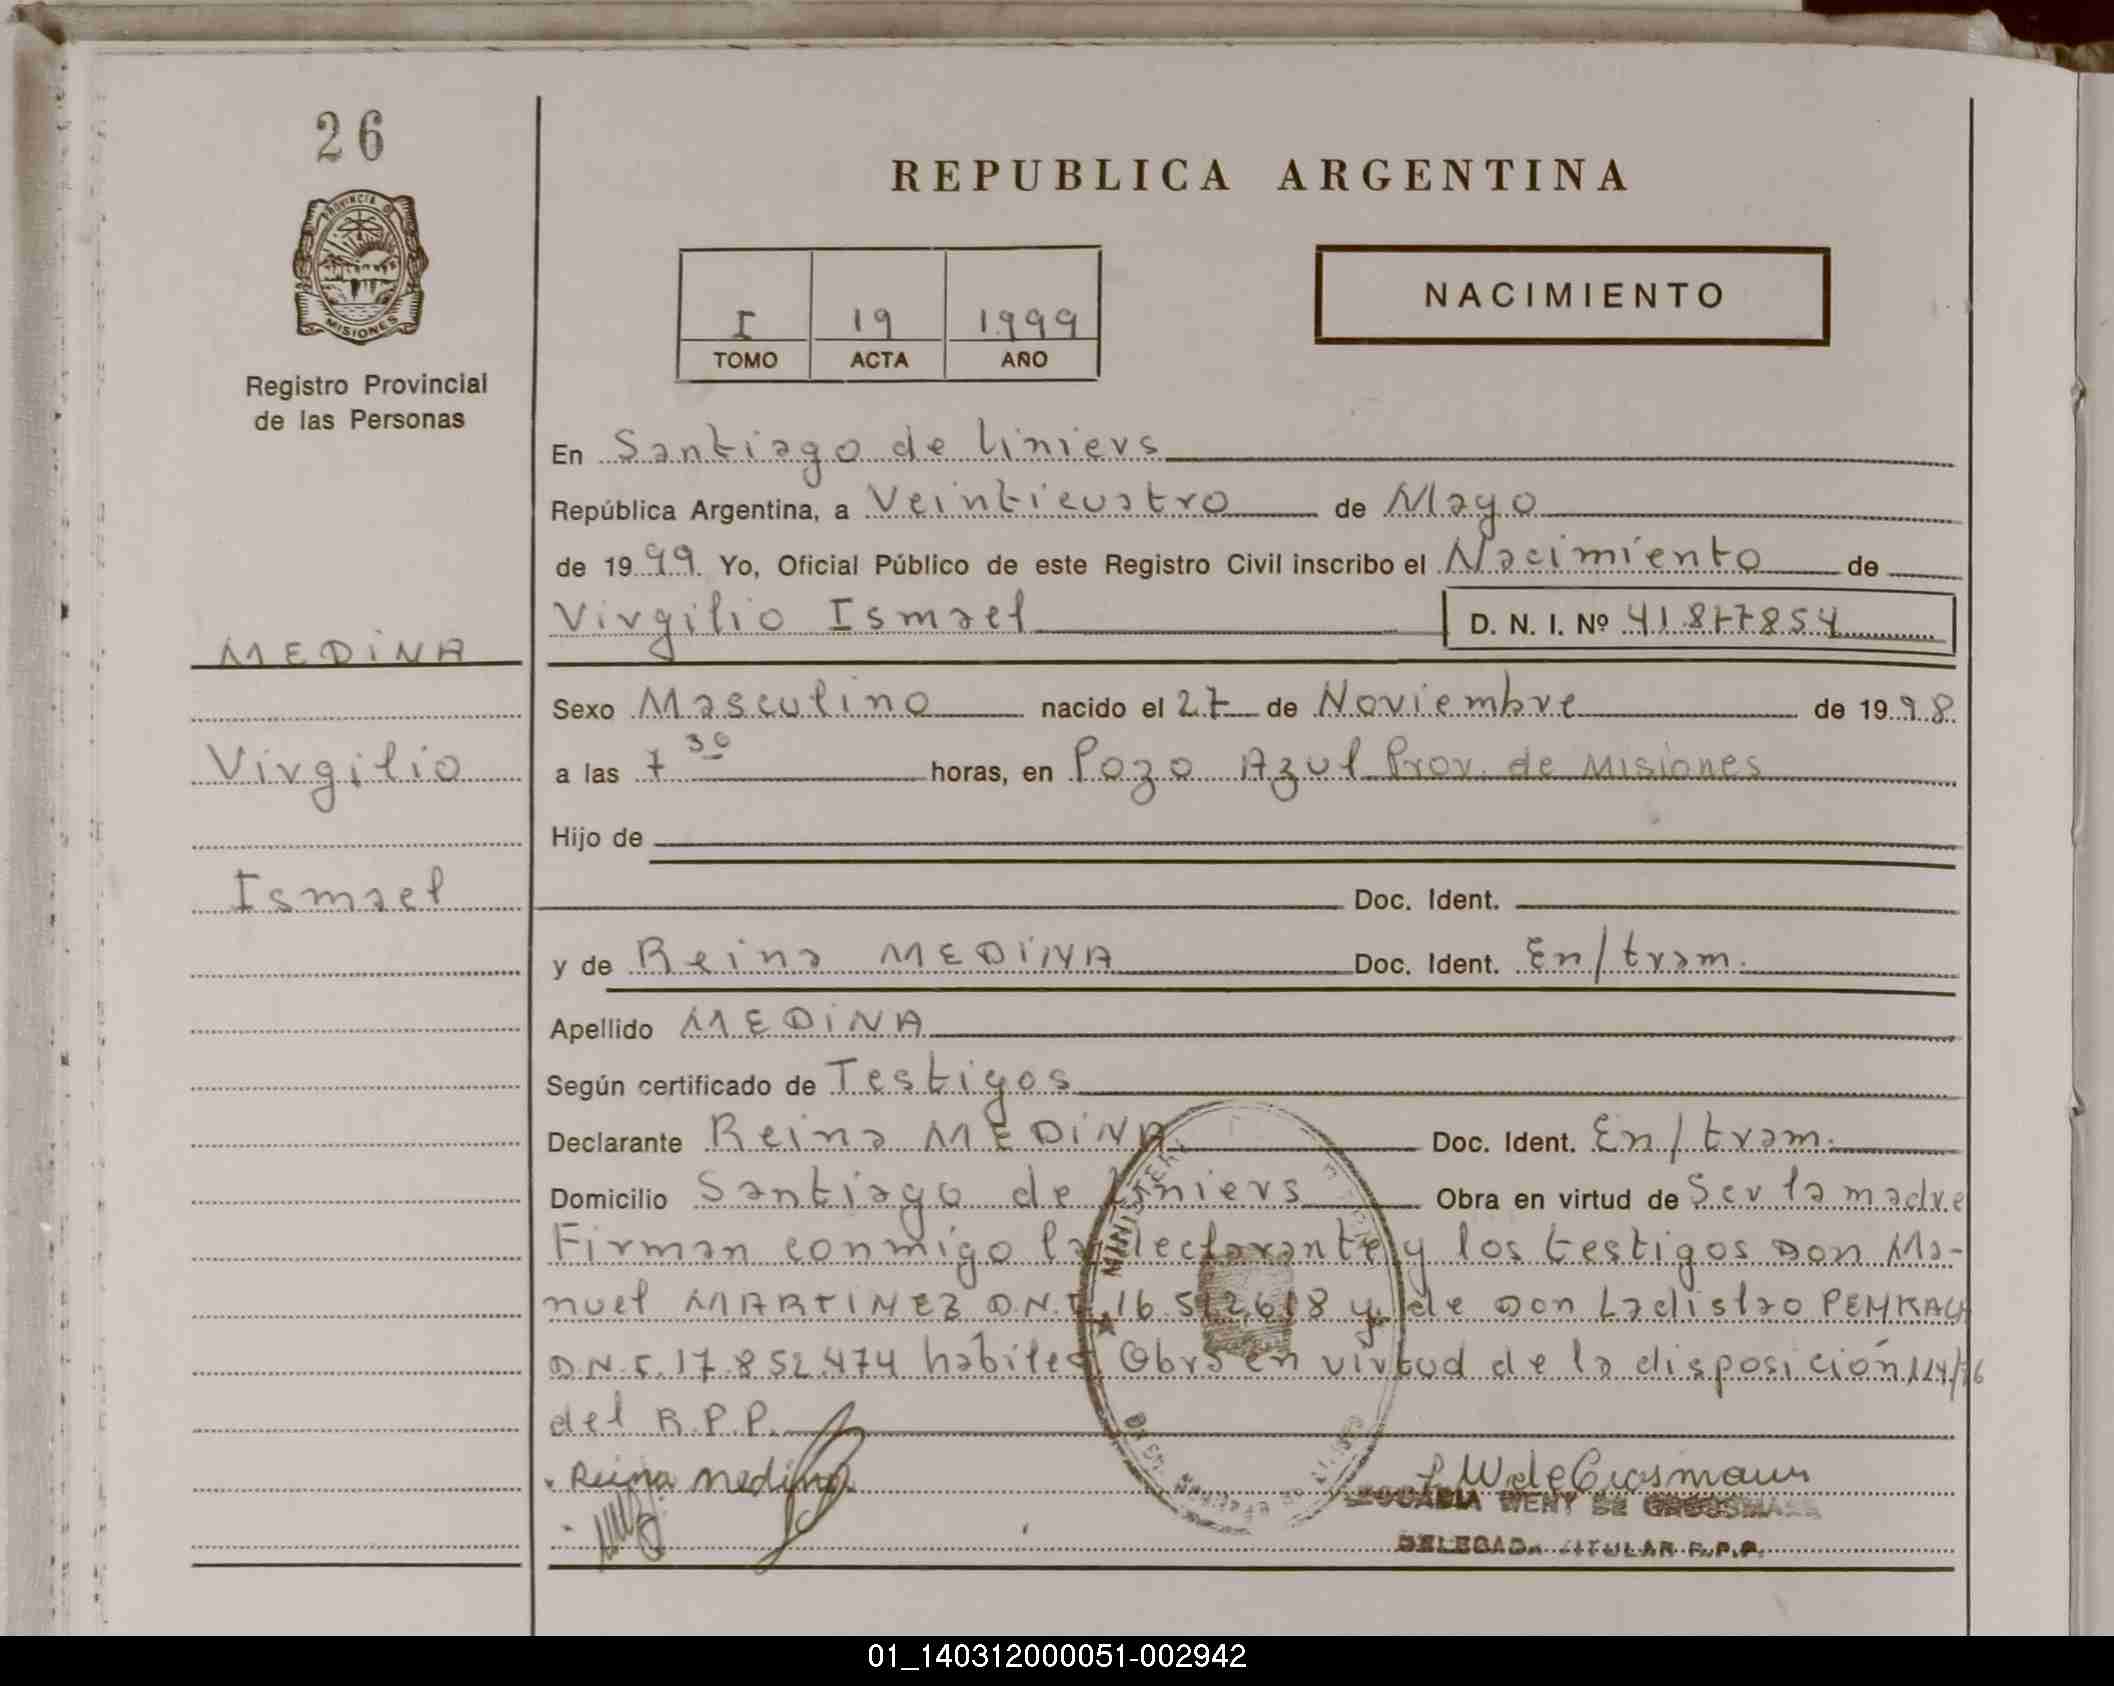 26
PROVINCIA DE
MISIONES
Registro Provincial
de las Personas
REPUBLICA ARGENTINA
I 19 1999
TOMO ACTA AÑO
NACIMIENTO
En Santiago de liniers
República Argentina, a Veinticuatro de Mayo
de 1999. Yo, Oficial Público de este Registro Civil inscribo el Nacimiento de
Virgilio Ismael D. N. I. Nº 41877854
MEDiNA
Sexo Masculino nacido el 27 de Noviembre de 1998
Virgilio
a las 7 30 horas, en Pozo Azul Prov. de Misiones
Hijo de
Ismael
Doc. Ident.
y de Reina MEDiNA Doc. Ident. En/tram.
Apellido MEDiNA
Según certificado de Testigos
Declarante Reina MEDiNA Doc. Ident. En/tram.
Domicilio Santiago de Liniers Obra en virtud de Ser la madre
Firman conmigo la declarante y los testigos Don Ma-
nuel MARTINEZ D.N.I. 16.512.618 y de Don Ladislao
D.N.I. 17.852.474 habiles Obra en virtud de la disposición
del R.P.P.
Reina Medina
WENY DE
DELEGADA TITULAR R.P.P.
MINISTERI
01_140312000051-002942